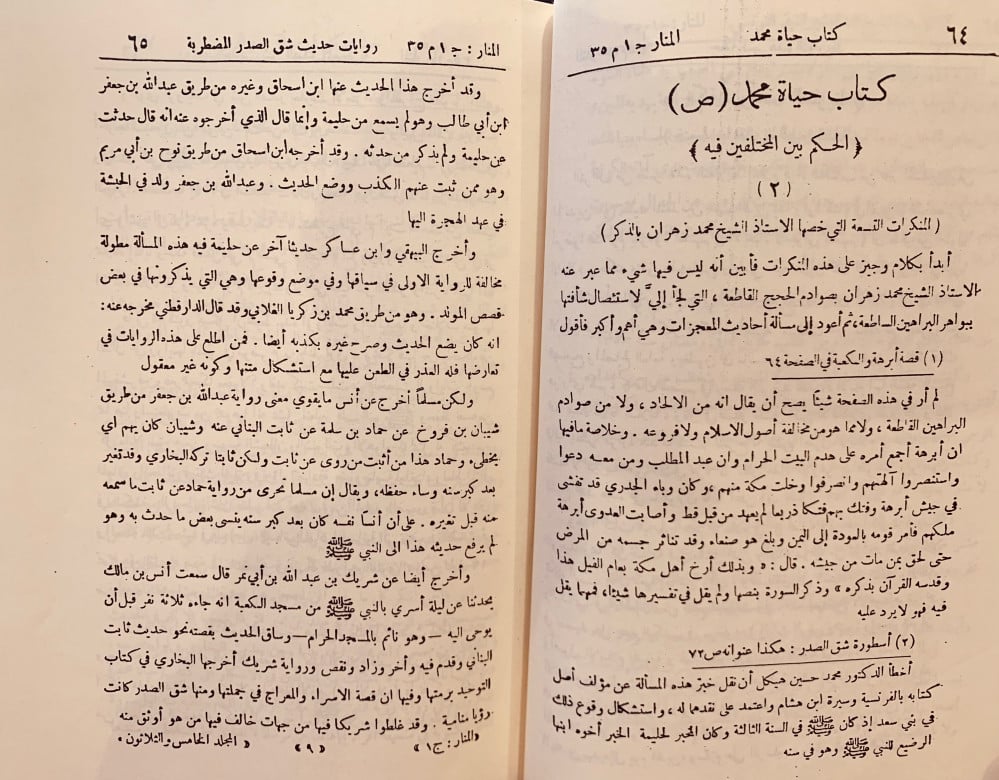 ٦٤ كتاب حياة محمد المنار ج ١ م ٣٥
كتاب حياة محمد (ص)
﴿ الحكم بين المختلفين فيه ﴾
(٢)
( المنكرات التسعة التي خصها الاستاذ الشيخ محمد زهران بالذكر )
أبدأ بكلام وجيز على هذه المنكرات فأبين أنه ليس فيها شيء مما عبر عنه
الاستاذ الشيخ محمد زهران بصوادم الحجج القاطعة ، التي لجأ إليَّ لاستئصال شأفتها
ببواهر البراهين الساطعة، ثم أعود إلى مسألة أحاديث المعجزات وهي أهم وأكبر فأقول
(١) قصة أبرهة والكعبة في الصفحة ٦٤
لم أر في هذه الصفحة شيئا يصح أن يقال انه من الالحاد ، ولا من صوادم
البراهين القاطعة ، ولا مما هو من مخالفة أصول الاسلام ولا فروعه . وخلاصة مافيها
ان أبرهة أجمع أمره على هدم البيت الحرام وان عبد المطلب ومن معه دعوا
واستنصروا آلهتهم وانصرفوا وخلت مكة منهم ، وكان وباء الجدري قد تفشى
في جيش أبرهة وفتك بهم فتكا ذريعا لم يعهد من قبل قط وأصابت العدوى أبرهة
ملكهم فأمر قومه بالعودة إلى اليمن وبلغ هو صنعاء وقد تناثر جسمه من المرض
حتى لحق بمن مات من جيشه . قال : « وبذلك أرخ أهل مكة بعام الفيل هذا
وقدسه القرآن بذكره » وذكر السورة بنصها ولم يقل في تفسيرها شيئا، فمهما يقل
فيه فهو لا يرد عليه
(٢) أسطورة شق الصدر : هكذا عنوانه ص ٧٢
أخطأ الدكتور محمد حسين هيكل أن نقل خبر هذه المسألة عن مؤلف أصل
كتابه بالفرنسية وسيرة ابن هشام واعتمد على نقدهما له ، واستشكال وقوع ذلك
في بني سعد إذ كان ﷺ في السنة الثالثة وكان المخبر لحليمة الخبر أخوه ابنها
الرضيع للنبي ﷺ وهو في سنه
المنار : ج ١ م ٣٥ روايات حديث شق الصدر المضطربة ٦٥
وقد أخرج هذا الحديث عنها ابن اسحاق وغيره من طريق عبدالله بن جعفر
ابن أبي طالب وهو لم يسمع من حليمة وإنما قال الذي أخرجوه عنه انه قال حدثت
عن حليمة ولم يذكر من حدثه . وقد أخرجه ابن اسحاق من طريق نوح بن أبي مريم
وهو ممن ثبت عنهم الكذب ووضع الحديث . وعبدالله بن جعفر ولد في الحبشة
في عهد الهجرة اليها
وأخرج البيهقي وابن عساكر حديثا آخر عن حليمة فيه هذه المسألة مطولة
مخالفة للرواية الاولى في سياقها وفي موضع وقوعها وهي التي يذكرونها في بعض
قصص المولد . وهو من طريق محمد بن زكريا الغلابي وقد قال الدارقطني مخرجه عنه :
انه كان يضع الحديث وصرح غيره بكذبه أيضا . فمن اطلع على هذه الروايات في
تعارضها فله العذر في الطعن عليها مع استشكال متنها وكونه غير معقول
ولكن مسلماً أخرج عن أنس مايقوي معنى رواية عبدالله بن جعفر من طريق
شيبان بن فروخ عن حماد بن سلمة عن ثابت البناني عنه وشيبان كان يهم اي
يخطىء وحماد هذا من أثبت من روى عن ثابت ولكن ثابتا تركه البخاري وقد تغير
بعد كبر سنه وساء حفظه، ويقال إن مسلما تحرى من رواية حماد عن ثابت ما سمعه
منه قبل تغيره . على أن أنساً نفسه كان بعد كبر سنه ينسى بعض ما حدث به وهو
لم يرفع حديثه هذا الى النبي ﷺ
وأخرج أيضا عن شريك بن عبد الله بن أبي نمر قال سمعت أنس بن مالك
يحدثنا عن ليلة أسري بالنبي ﷺ من مسجد الكعبة انه جاءه ثلاثة نفر قبل أن
يوحى اليه – وهو نائم بالمسجد الحرام – وساق الحديث بقصته نحو حديث ثابت
البناني وقدم فيه وأخر وزاد ونقص ورواية شريك أخرجها البخاري في كتاب
التوحيد برمتها وفيها ان قصة الاسراء والمعراج في جملتها ومنها شق الصدر كانت
رؤيا منامية . وقد غلطوا شريكا فيها من جهات خالف فيها من هو أوثق منه
«المنار : ج ١» «٩» «المجلد الخامس والثلاثون»